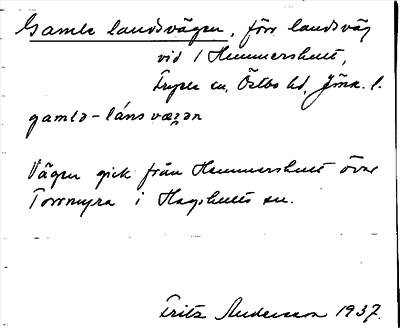 Gamla landsvägen, förr landsväg
vid 1 Hemmershult,
Tryde sn, Östbo hd, Jönk. l.
gamla-lánsvæzən
Vägen gick från Hemmershult över
Torrmyra i Hagshults sn.
Fritz Andersson 1937.